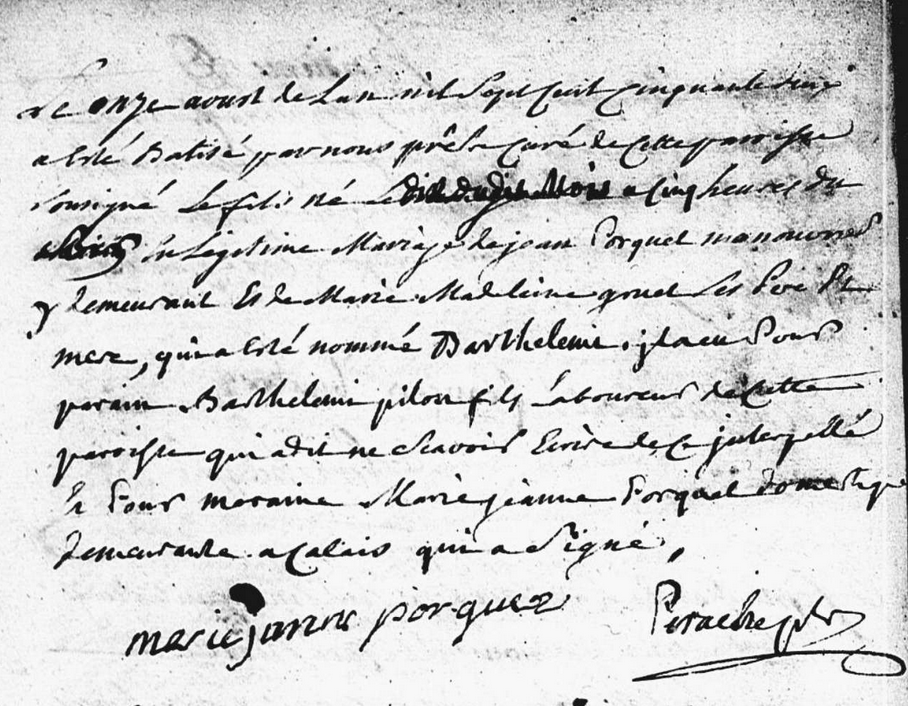 Le onze aoust de Lan mil Sept Cent Cinquante deux
a Esté Batisé par nous prêtre Curé de Cette paroisse
sousigné Le fils né Le dit dudit Mois a Cinq heures du
En Légitime Mariage de jean Porquet manouvrier
y demeurant Et de Marie Madeleine Les Pere Et
mere, qui a Esté nommé Barthelemi, il a eu Pour
parain Barthelemi pilon fils Laboureur de Cette
paroisse qui a dit ne Scavoir Ecrire de Ce jnterpellé
Et Pour maraine Marie jeanne Porquet domestique
demeurante a Calais qui a Signé,
marie janne porquez